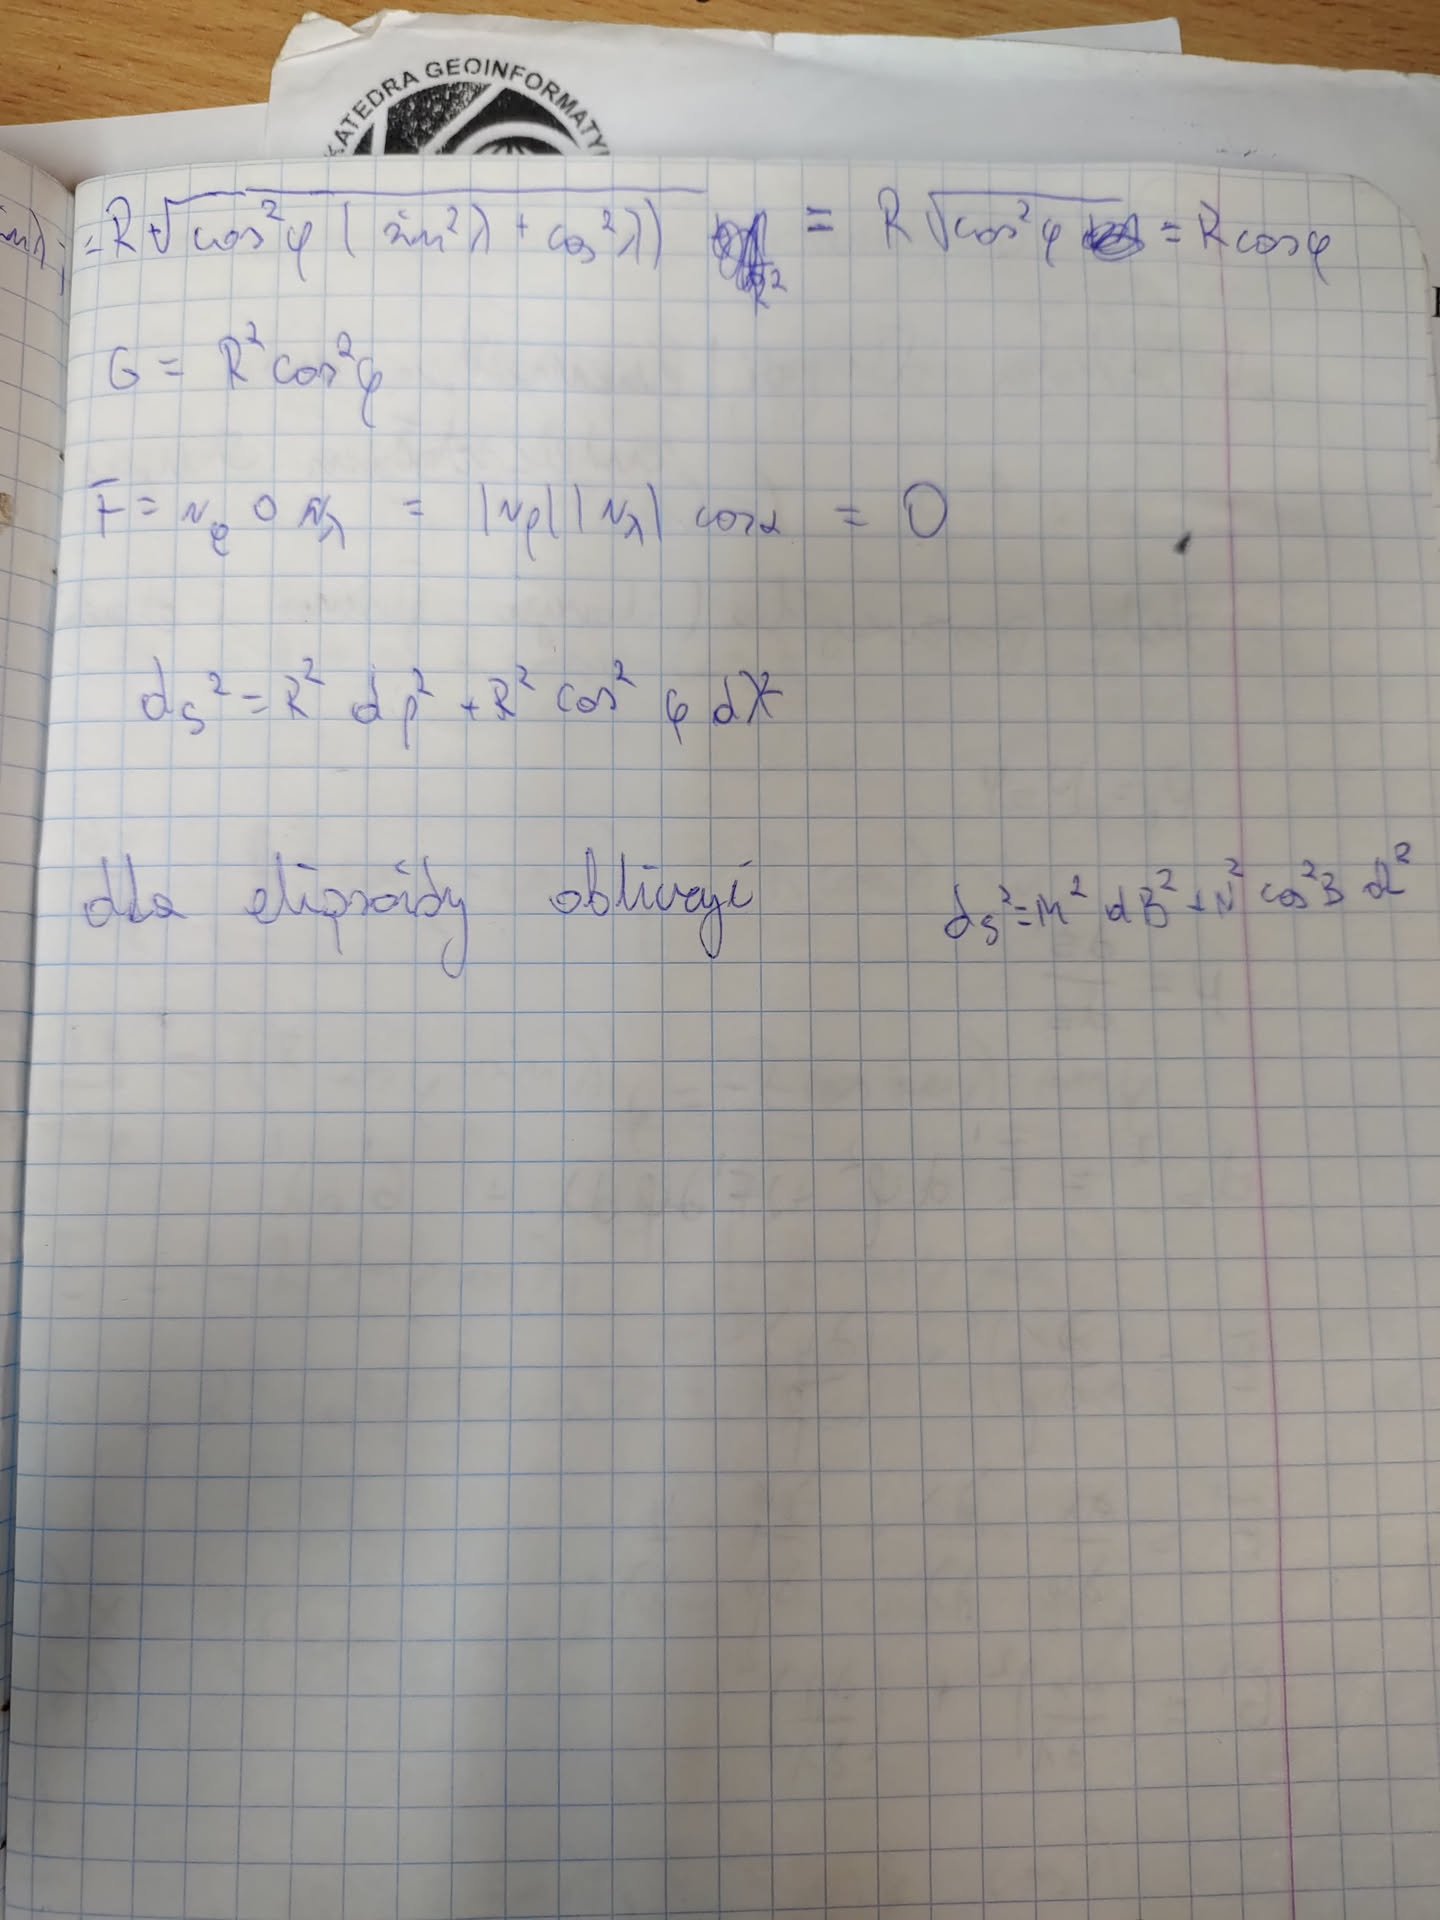 KATEDRA GEOINFORMATY
= R √cos²φ (sin²λ + cos²λ) = R √cos²φ = R cosφ
G = R² cos²φ
F = r_φ o r_λ = |r_φ| |r_λ| cosα = 0
ds² = R² dφ² + R² cos² φ dλ²
dla elipsoidy obliczyć ds² = M² dB² + N² cos²B dL²